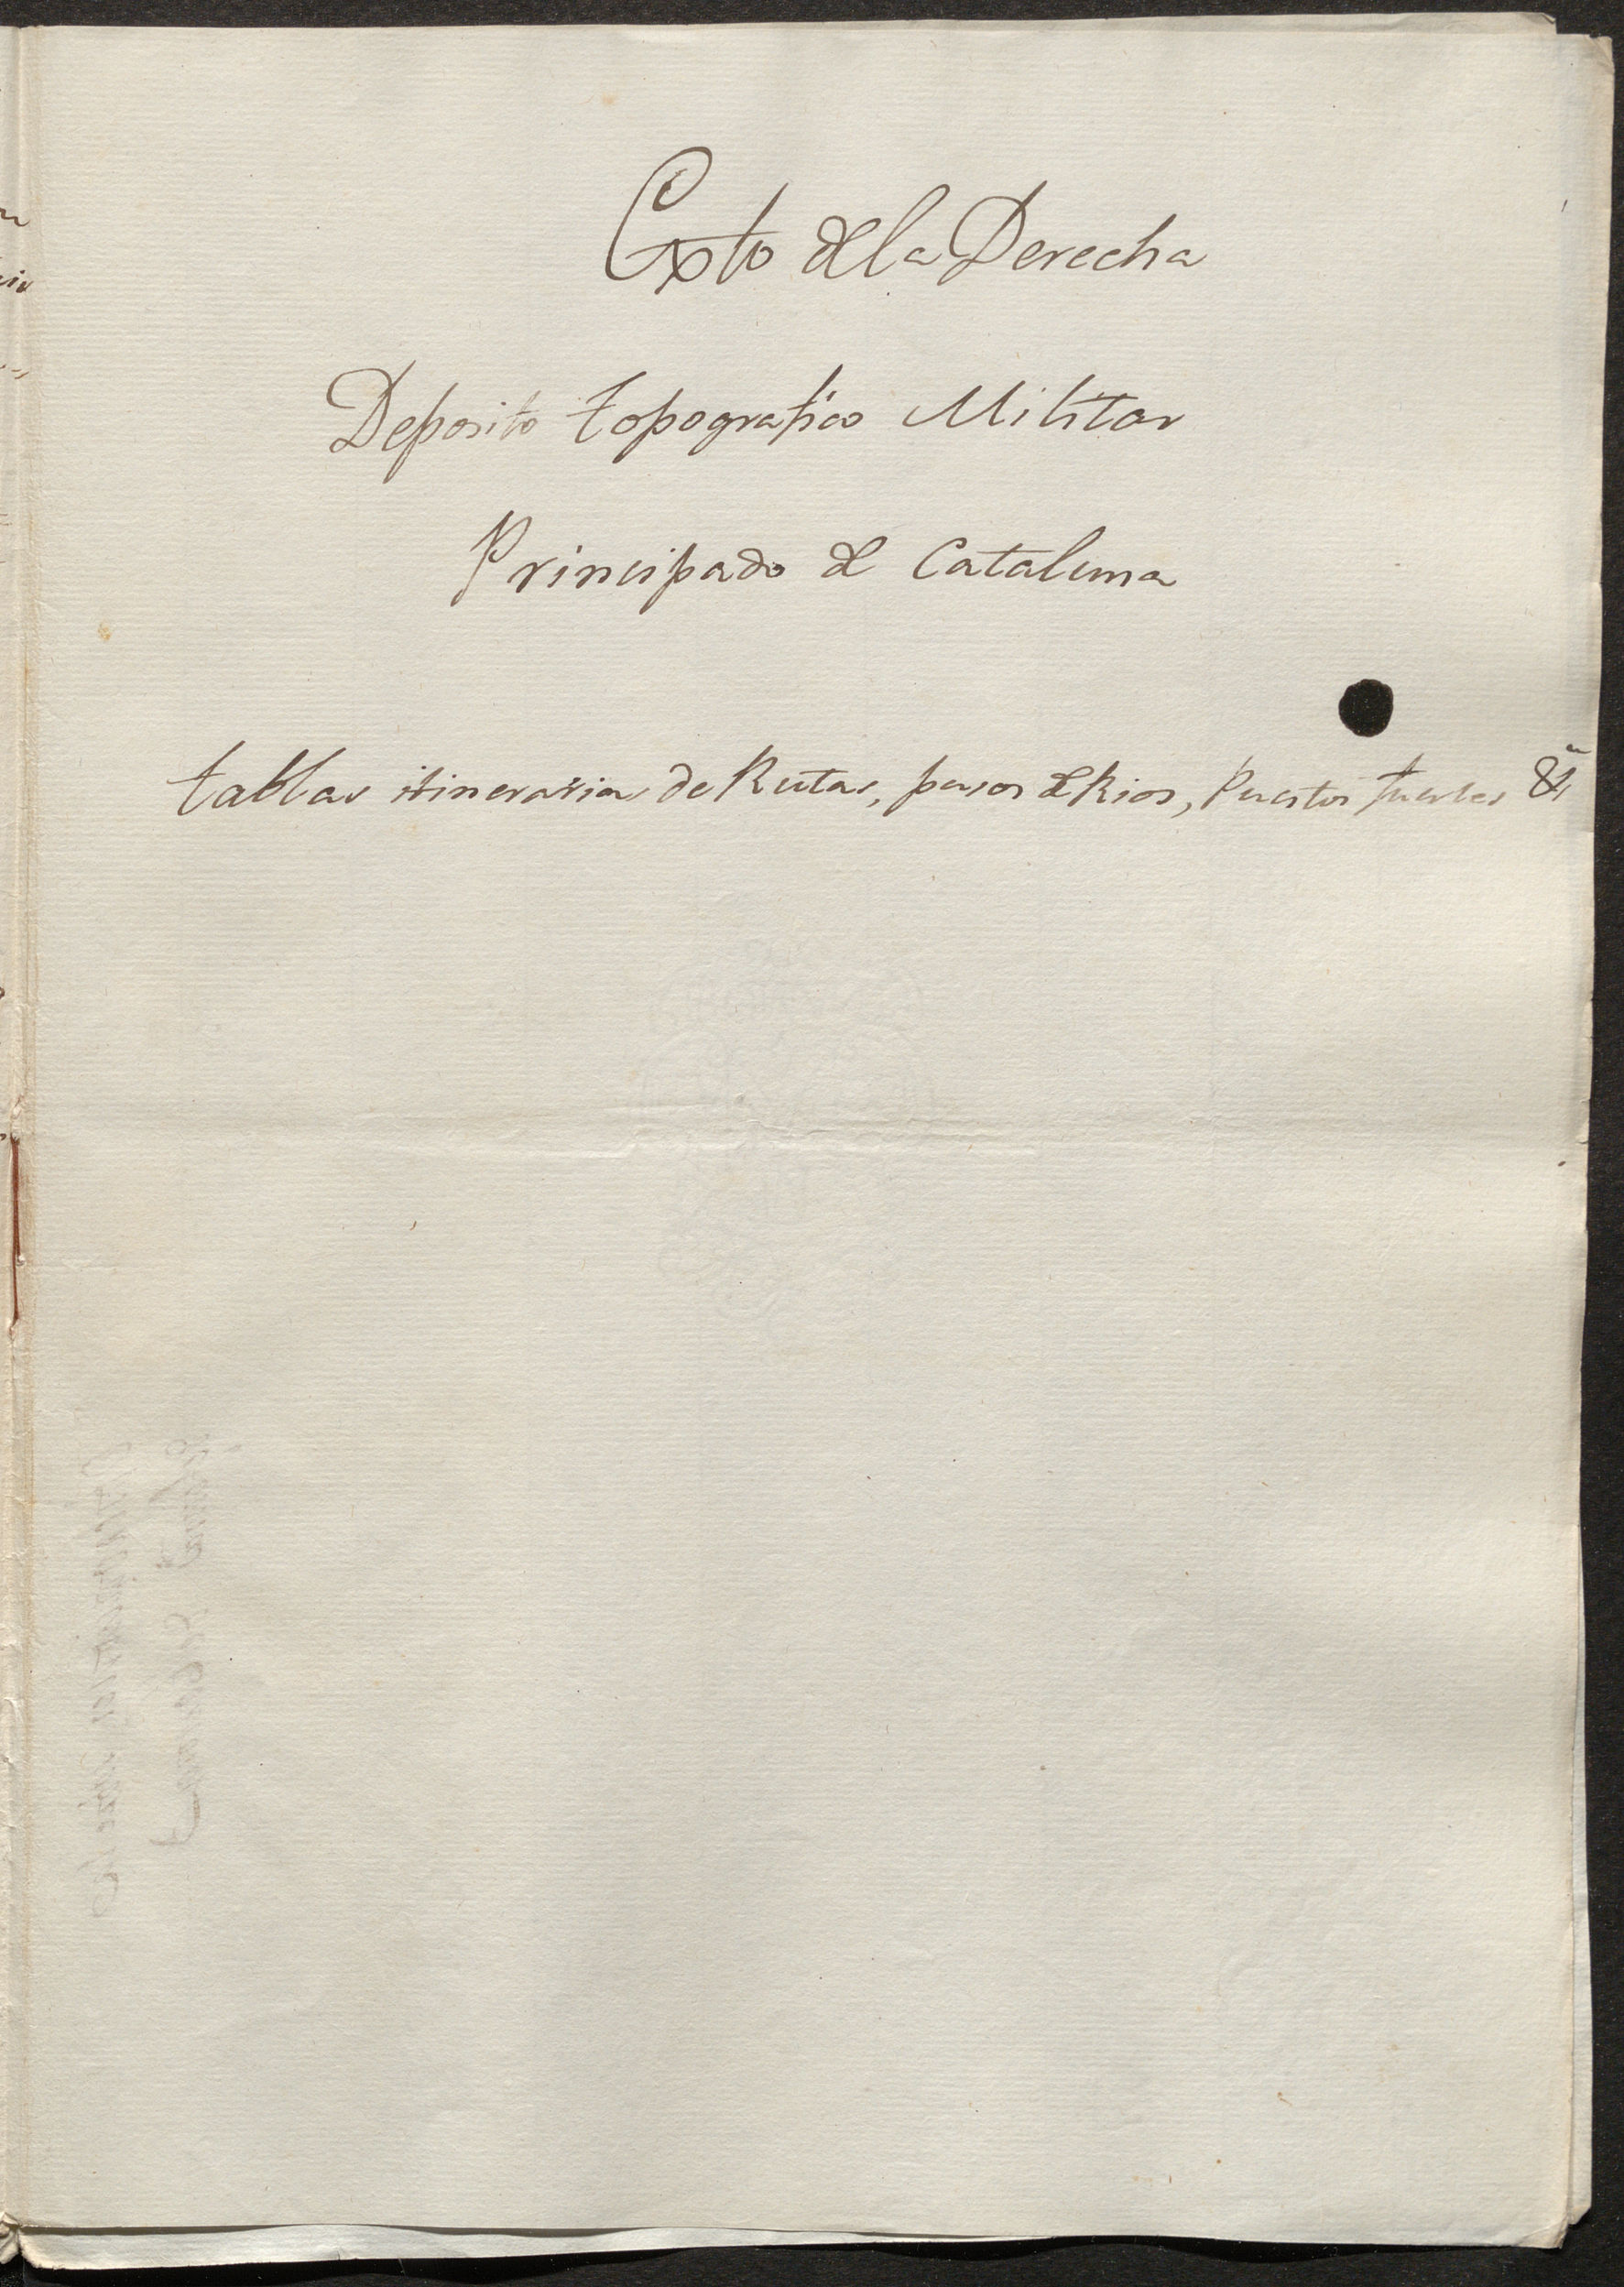 Exto de la Derecha
Deposito topografico Militar
Principado de Cataluna
tablas itinerarias de Rutas, pasos de Rios, Puestos fuertes &ª